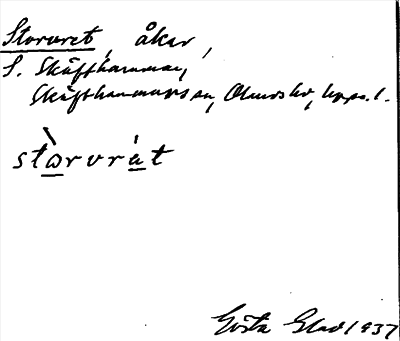 Storvret, åker,
S. Skäfthammar,
Skäfthammars sn, Olands hd, Upps. l.
stòrvrát
Gösta Glad 1937